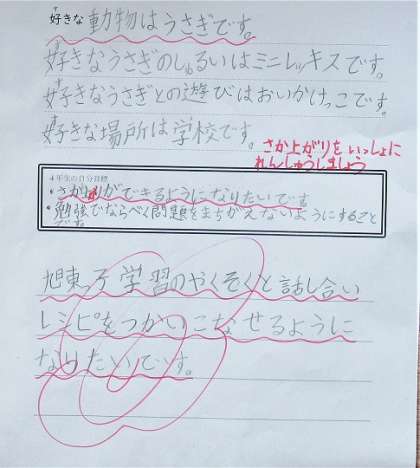 好きな動物はうさぎです。
好きなうさぎのしゅるいはミニレッキスです。
好きなうさぎとの遊びはおいかけっこです。
好きな場所は学校です。
さか上がりをいっしょに
れんしゅうしましょう
4年生の自分目標
・さか上がりができるようになりたいです
・勉強でならべく問題をまちがえないようにすること
です。
旭東っ子学習のやくそくと話し合い
レシピをつかいこなせるように
なりたいです。